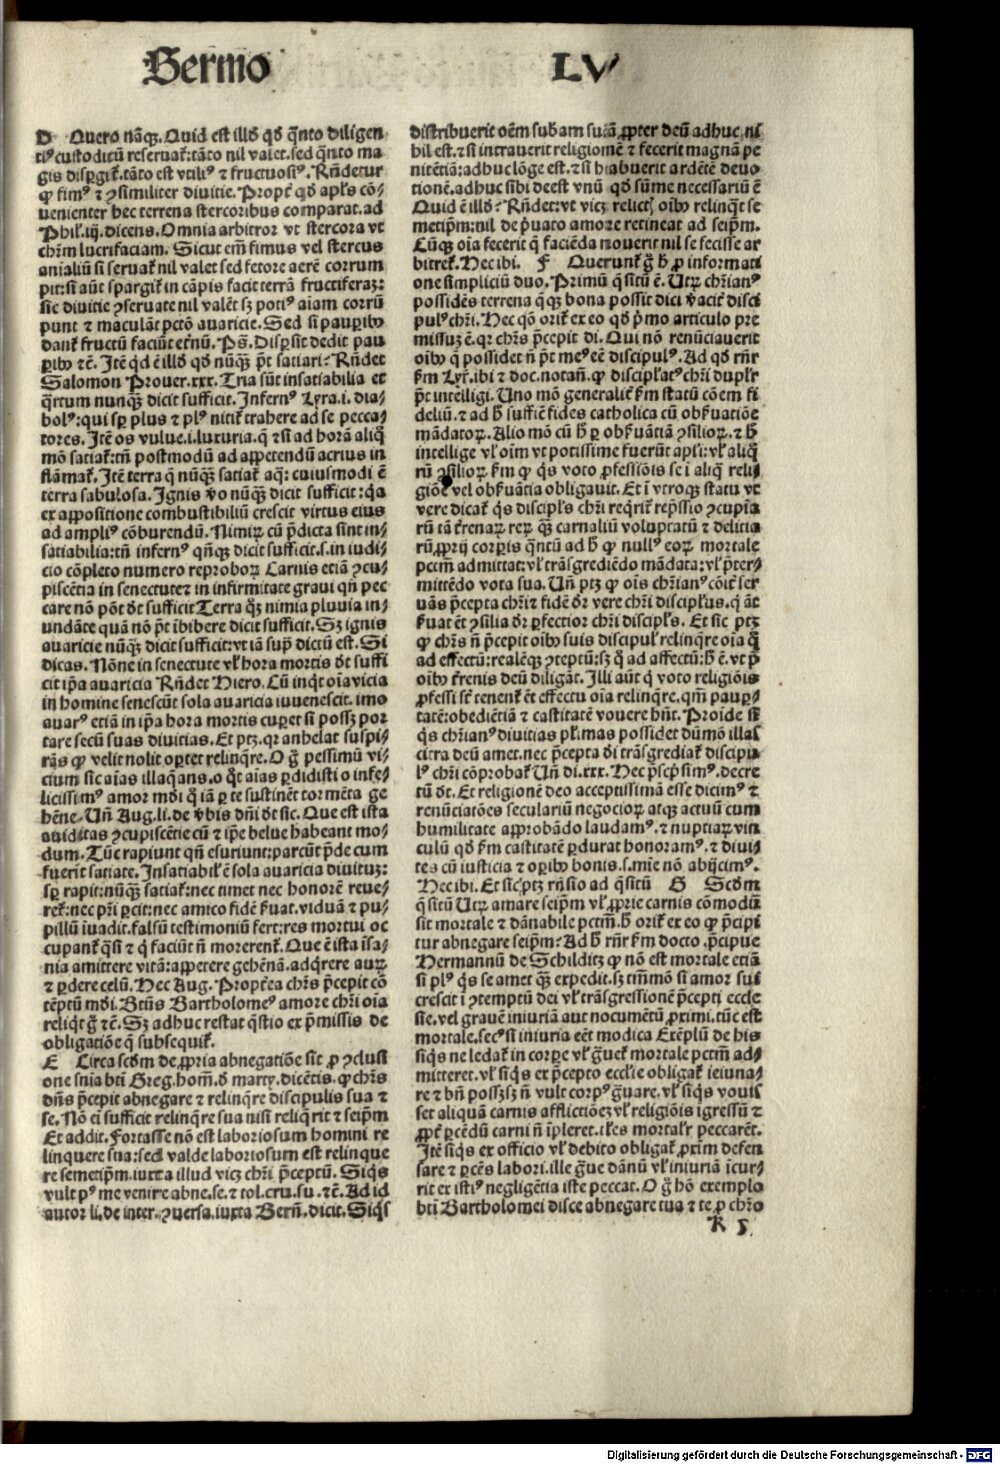 Sermo LV
D Quero nāqꝫ. Quid est illď qď q̃nto diligen
tiꝰ custoditū reseruať: tāto nil valet. sed q̃nto ma
gis disp̱giť. tāto est vtiliꝰ ⁊ fructuosiꝰ. Rñdetur
ꝙ fimꝰ ⁊ ꝯsimiliter diuitie. Propť qď apl̃s cō-
uenienter hec terrena stercoribus comparat. ad
Phil'. iij. dicens. Omnia arbitror vt stercora vt
chr̄m lucrifaciam. Sicut em̄ fimus vel stercus
anialiū si seruať nil valet sed fetore aerē corrum
pit: si aūt spargiť in cāpis facit terrā fructiferaꝫ:
sic diuitie ꝯseruate nil valēt sꝫ potiꝰ aīam corrū
punt ⁊ maculāt pctō auaricie. Sed si paupibꝰ
danť fructū faciūt et̄nū. Ps̄. Disp̱sit dedit pau
p̱ibꝰ ⁊c̄. Itē qd ē illď qď nūqꝫ p̄t satiari? Rñdet
Salomon Prouer. xxx. Tria sūt insatiabilia et
q̄rtum nunqꝫ dicit sufficit. Infernꝰ Lyra. i. dia-
bolꝰ: qui sp̱ plus ⁊ plꝰ nitiť trahere ad se pecca-
tores. Itē os vulue. i. luxuria. q̄ ⁊si ad horā aliq̄
mō satiať: tn̄ postmodū ad appetendū acrius in
flāmať. Itē terra q̄ nūqꝫ satiať aq̄: cuiusmodi ē
terra sabulosa. Ignis v̄o nūqꝫ dicit sufficit: q̄a
ex appositione combustibiliū crescit virtus eius
ad ampliꝰ cōburendū. Nimiꝝ cū p̄dicta sint in-
satiabilia: tn̄ infernꝰ qn̄qꝫ dicit sufficit. s. in iudi-
cio cōpleto numero reproboꝝ Carnis etiā ꝯcu-
piscētia in senectute ⁊ in infirmitate graui qn̄ pec
care nō pōt ďt sufficit Terra q̄ꝫ nimia pluuia in-
undāte quā nō p̄t ībibere dicit sufficit. Sꝫ ignis
auaricie nūqꝫ dicit sufficit: vt iā sup̄ dictū est. Si
dicas. Nōne in senectute vl' hora mortis ďt suffi
cit ip̄a auaricia Rñdet Hiero. Cū inq̇t oīa vicia
in homine senescūt sola auaricia iuuenescit. imo
auarꝰ etiā in ip̄a hora mortis cup̱et si possꝫ por
tare secū suas diuitias. Et ptꝫ. qr anhelat suspi-
rās ꝙ velit nolit op̱tet relinq̄re. O ḡ pessimū vi-
cium sic aīas illaq̄ans. o q̊t aīas p̱didisti o infe-
licissimꝰ amor mūdi q̄ iā p̱ te sustinēt tormēta ge
hēne. Un̄ Aug. li. de v̄bis dn̄i ďt sic. Que est ista
auiditas ꝯcupiscētie cū ⁊ ip̄e belue habeant mo-
dum. Tūc rapiunt qn̄ esuriunt: parcūt p̄de cum
fuerīt satiate. Insatiabil' ē sola auaricia diuituꝫ:
sp̱ rapit: nūqꝫ satiať: nec timet nec honorē reue-
reť: nec pr̄i p̱cit: nec amico fidē ẜuat. viduā ⁊ pu-
pillū iuadit. falsū testimoniū fert: res mortui oc
cupanť q̄si ⁊ q̇ faciūt n̄ morerenť. Que ē ista īsa-
nia amittere vitā: appetere gehēnā. adq̄rere auꝝ
⁊ p̱dere celū. Hec Aug. Propťea chr̄s p̄cepit cō
tēptū mūdi. Btūs Bartholomeꝰ amore chr̄i oīa
reliq̇t ḡ ⁊c̄. Sꝫ adhuc restat q̄stio ex p̄missis de
obligatiōe q̄ subsequiť.
E Circa scďm de ꝓpria abnegatiōe sit ꝓ ꝯclusi
one sn̄ia bti Greg. hom̄. ď marty. dicētis. ꝙ chr̄s
dn̄s p̄cepit abnegare ⁊ relinq̄re discipulis sua ⁊
se. Nō ei sufficit relinq̄re sua nisi reliq̄rit ⁊ seip̄m
Et addit. Fortasse nō est laboriosum homini re
linquere sua: sed valde laboriosum est relinque
re semetip̄m. iuxta illud vicꝫ chr̄i p̄ceptū. Siq̇s
vult pꝰ me venire abne. se. ⁊ tol. cru. su. ⁊c̄. Ad id
autor li. de inter. ꝯuersa. iuxta Bern̄. dicit. Siq̇s
distribuerit oēm sub̄am suā ꝓpter deū adhuc ni
hil est. ⁊ si intrauerit religionē ⁊ fecerit magnā pe
nitētiā: adhuc lōge est. ⁊ si habuerit ardētē deuo
tionē. adhuc sibi deest vnū qď sūme necessariū ē
Quid ē illď? Rñdet: vt vicꝫ relictꝭ oībꝰ relinq̄t se
metip̄m: nil de p̱uato amore retineat ad seip̄m.
Cūqꝫ oīa fecerit q̄ faciēda nouerit nil se fecisse ar
bitreť. Hec ibi. F Querunť ḡ h̄ ꝓ informati
one simpliciū duo. Primū q̄sitū ē. Utꝝ chr̄ianꝰ
possidēs terrena q̄qꝫ bona possit dici v̄aciť disci
pulꝰ chr̄i. Hec qō oriť ex eo qď p̄mo articulo pre
missuꝫ ē. qr chr̄s p̄cepit di. Qui nō renūciauerit
oībꝰ q̄ possidet n̄ p̄t meꝰ ēe discipulꝰ. Ad qď rn̄r
ẜm Lyr̄. ibi ⁊ doc. notan̄. ꝙ discipl'atꝰ chr̄i dupl'r
p̄t intelligi. Uno mō generaliť ẜm statū cōem fi
deliū. ⁊ ad h̄ sufficīt fides catholica cū obẜuatiōe
mādatoꝝ. Alio mō cū h̄ p̱ obẜuātiā ꝯsilioꝝ. ⁊ h̄
intellige vl' oīm vt potissime fuerūt apl̃i: vl' aliq̄
rū ꝯsilioꝝ ẜm ꝙ q̇s voto ꝓfessiōis se ī aliq̄ reli-
giōe vel obẜuātia obligauit. Et ī vtroqꝫ statu vt
vere dicať q̇s discipl's chr̄i req̇riť rep̄ssio ꝯcupīa
rū tā t̄renaꝝ reꝝ q̄ꝫ carnaliū voluptatū ⁊ delicia
rū ꝓprij corp̱is q̄ntū ad h̄ ꝙ nullꝰ eoꝝ mortale
pctm̄ admittat: vl' trāsgrediēdo mādata: vl' p̄ter-
mittēdo vota sua. Un̄ ptꝫ ꝙ oīs chr̄ianꝰ cōiť ẜer
uās p̄cepta chr̄i ⁊ fidē ďr vere chr̄i discipl'us. q̄ āt
ẜuat ēt ꝯsilia ďr p̱fectior chr̄i discipl's. Et sic ptꝫ
ꝙ chr̄s n̄ p̄cepit oībꝰ suis discipul' relinq̄re oīa q̊
ad effectū: realēqꝫ ꝯteptū: sꝫ q̊ ad affectū: h̄ ē. vt p̄
oībꝰ t̄renis deū diligāt. Illi aūt q̄ voto religiōis
ꝓfessi sť tenenť ēt effectu oīa relinq̄re. qm̄ paup̱-
tatē: obediētiā ⁊ castitatē vouere hn̄t. Proide sī
q̇s chr̄ianꝰ diuitias pl'imas possidet dūmō illas
citra deū amet. nec p̄cepta di trāsgrediať discipu
lꝰ chr̄i cōprobať Un̄ di. xxx. Hec p̄scp̄simꝰ. decre
tū ďt. Et religionē deo acceptissimā esse dicimꝰ ⁊
renūciatōes seculariū negocioꝝ atqꝫ actuū cum
humilitate approbādo laudamꝰ. ⁊ nuptiaꝝ vin
culū qď ẜm castitatē p̱durat honoramꝰ. ⁊ diui-
tes cū iusticia ⁊ opibꝰ bonis. s. mīe nō abijcimꝰ.
Hec ibi. Et sic ptꝫ rn̄sio ad q̄sitū G Scďm
q̄sitū Utꝝ amare seip̄m vl' ꝓprie carnis cōmodū
sit mortale ⁊ dānabile pctm̄. h̄ oriť ex eo ꝙ p̄cipi
tur abnegare seip̄m? Ad h̄ rn̄r ẜm docto. p̄cipue
Hermannū de Schilditꝫ ꝙ nō est mortale etiā
si plꝰ q̇s se amet q̄ꝫ expedit. sꝫ tm̄mō si amor sui
crescit ī ꝯtemptū dei vl' trāsgressionē p̄cepti eccle
sie. vel grauē iniuriā aut nocumētū ꝓximi. tūc est
mortale. secꝰ si iniuria eēt modica Exēplū de his
siq̇s ne ledať in corpe vl' ḡueť mortale pctm̄ ad-
mitteret. vl' siq̇s ex p̄cepto eccl'ie obligať ieiuna-
re ⁊ bn̄ possꝫ sꝫ n̄ vult corpꝰ ḡuare. vl' siq̇s vouis
set aliquā carnis afflictiōeꝫ vl' religiōis īgressū ⁊
ꝓpť p̱cēdū carni n̄ īpleret. il'es mortal'r peccarēt.
Itē siq̇s ex officio vl' debito obligať ꝓxīm defen
sare ⁊ p̱cēs labori. ille ḡue dānū vl' iniuriā īcur-
rit ex istiꝰ negligētia iste peccat. O ḡ hō exemplo
bti Bartholomei disce abnegare tua ⁊ te ꝓ chr̄o
R 5
Digitalisierung gefördert durch die Deutsche Forschungsgemeinschaft - DFG